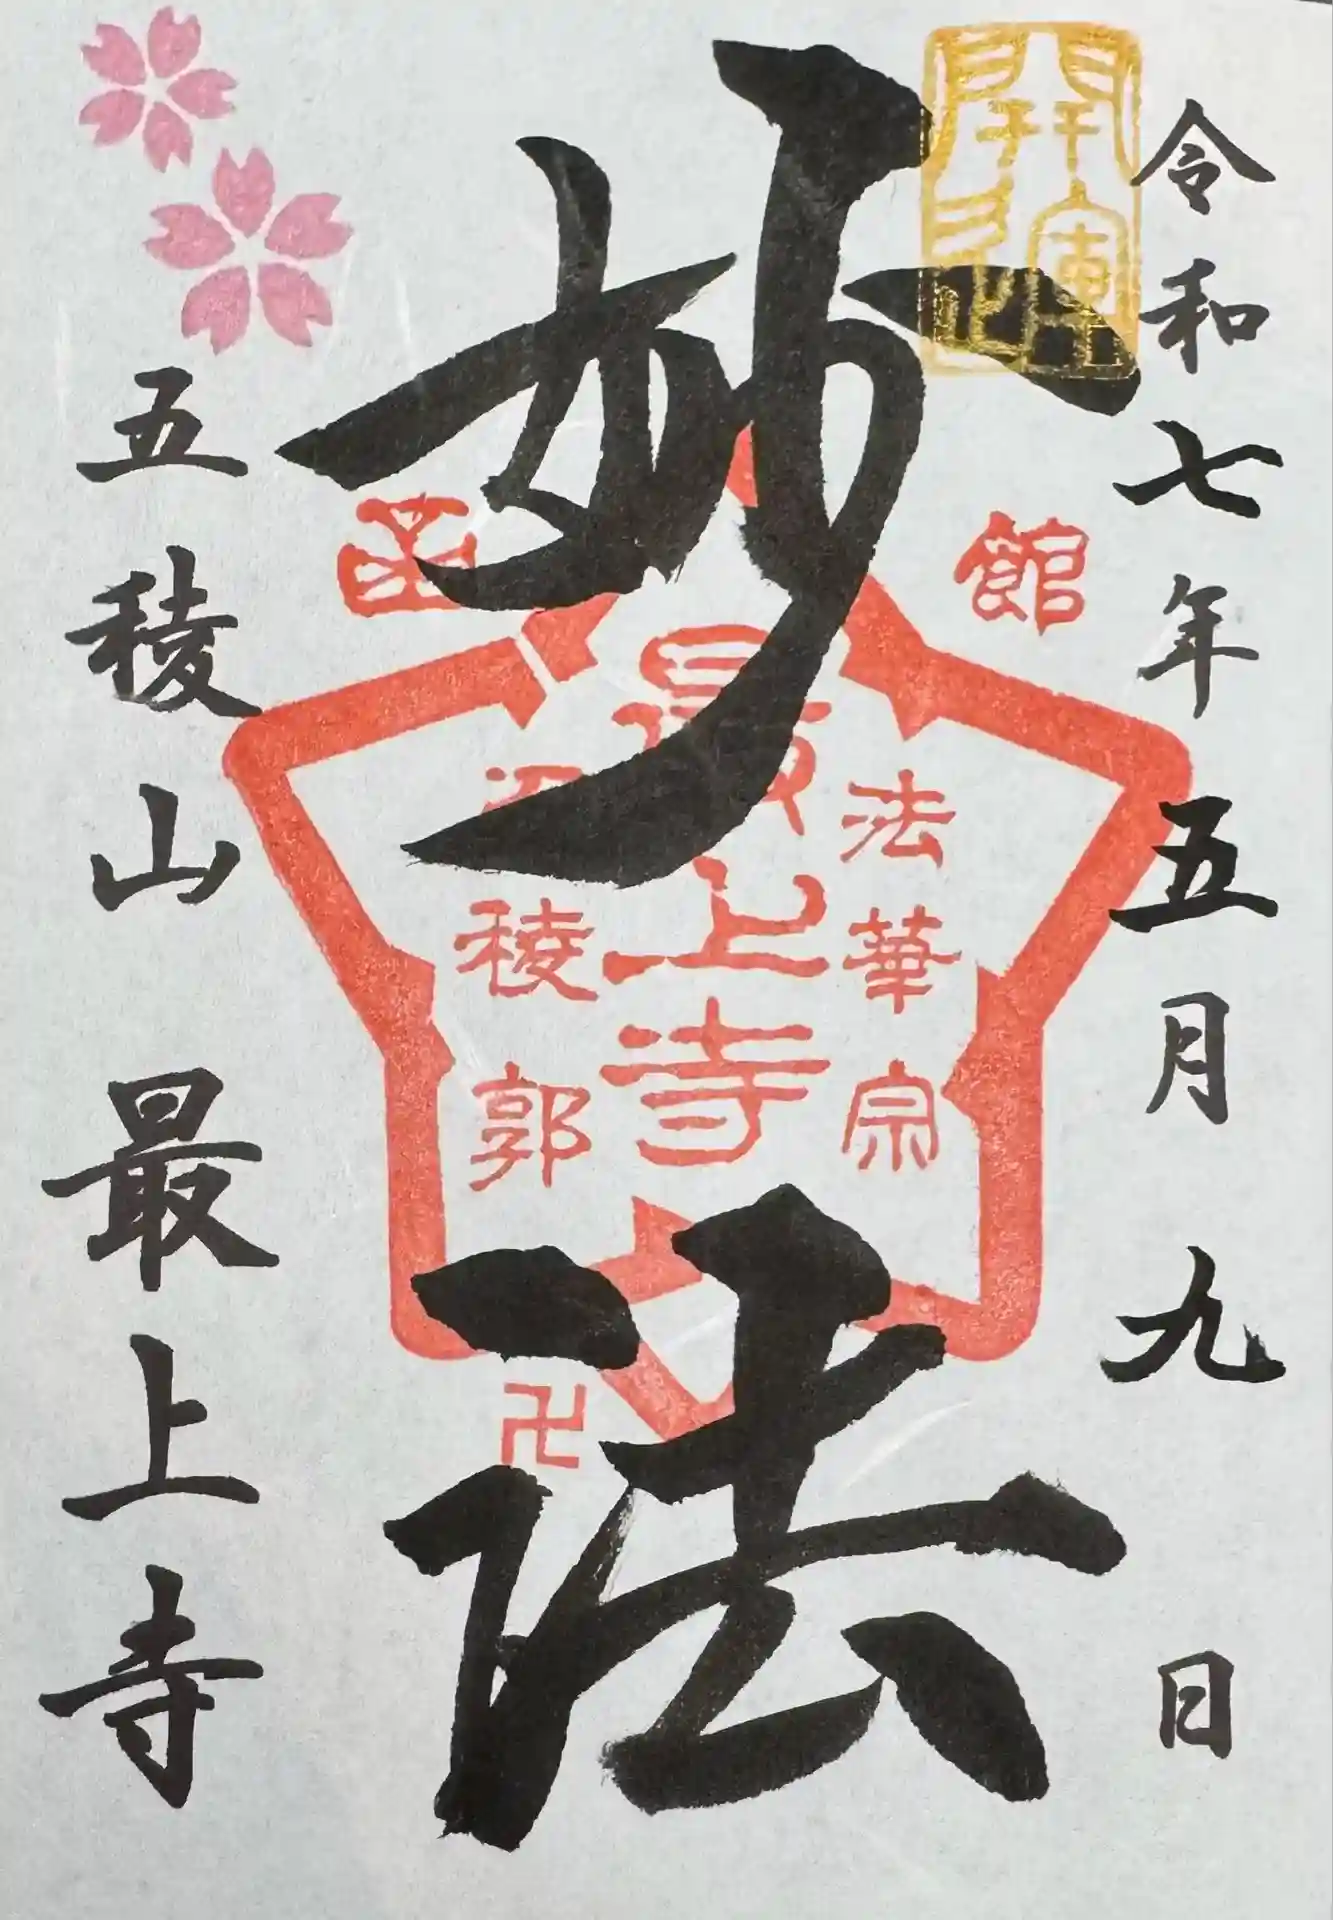 令和七年五月九日
開運
妙法
函館
法華宗
最上寺
五稜郭
卍
五稜山 最上寺